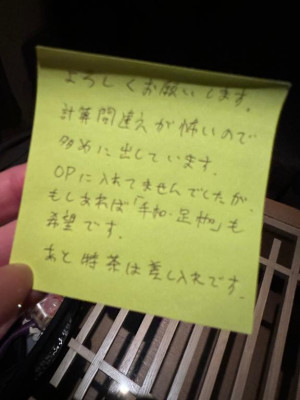 よろしくお願いします。
計算間違えが怖いので
多めに出しています。
OPに入れてませんでしたが、
もしあれば「手枷・足枷」も
希望です。
あと特茶は差し入れです。